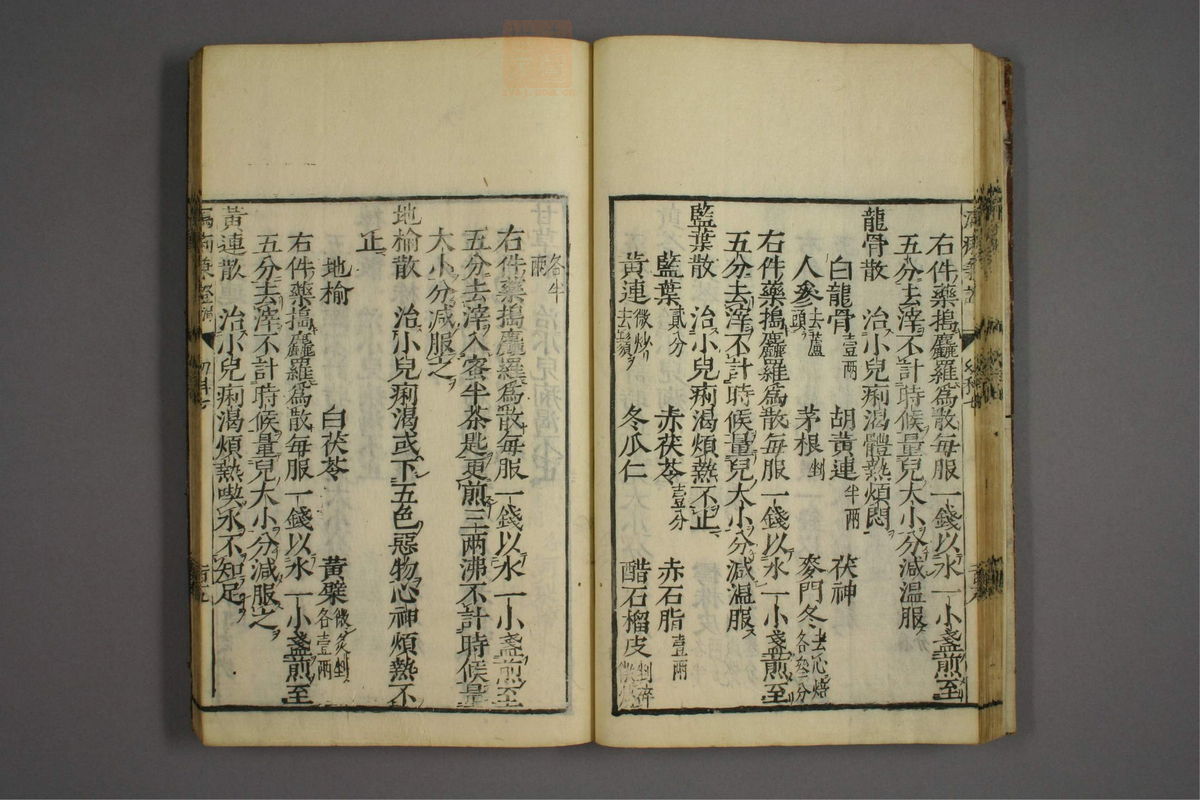 右件藥搗麤羅爲散每服一錢以水一小盞煎至
五分去滓不計時候量兒大小分減温服
龍骨散　治小兒痢渴體熱煩悶
白龍骨壹兩　胡黃連半兩　茯神
人參去蘆頭　茅根剉　麥門冬去心焙各叁分
右件藥搗麤羅爲散每服一錢以水一小盞煎至
五分去滓不計時候量兒大小分減温服
藍葉散　治小兒痢渴煩熱不止
藍葉貳分　赤茯苓壹分　赤石脂壹兩
黃連微炒去鬚　冬瓜仁　醋石榴皮剉碎微炒
各半兩
右件藥搗麤羅爲散每服一錢以水一小盞煎至
五分去滓入蜜半茶匙更煎三兩沸不計時候量
大小分減服之
地榆散　治小兒痢渴或下五色惡物心神煩熱不
止
地榆　白茯苓　黃蘗微炙剉各壹兩
右件藥搗麤羅爲散每服一錢以水一小盞煎至
五分去滓不計時候量兒大小分減服之
黃連散　治小兒痢渴煩熱喫水不知足